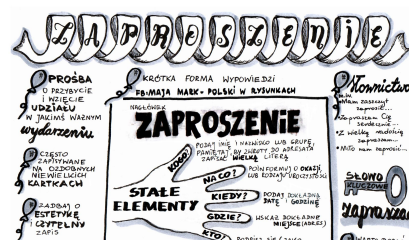 ZAPROSZENIE
PROŚBA
O PRZYBYCIE
I WZIĘCIE
UDZIAŁU
W JAKIMŚ WAŻNYM
wydarzeniu
CZĘSTO
ZAPISYWANE
NA OZDOBNYCH
NIEWIELKICH
KARTKACH
ZADBAJ O
ESTETYKĘ
I CZYTELNY
ZAPIS
KRÓTKA FORMA WYPOWIEDZI
FB: MAJA MARK - POLSKI W RYSUNKACH
NAGŁÓWEK
ZAPROSZENIE
STAŁE
ELEMENTY
KOGO?
PODAJ IMIĘ I NAZWISKO LUB GRUPĘ,
PAMIĘTAJ, BY ZWROTY DO ADRESATA
ZAPISAĆ WIELKĄ LITERĄ
NA CO?
POINFORMUJ O OKAZJI,
LUB RODZAJU UROCZYSTOŚCI
KIEDY?
PODAJ DOKŁADNĄ
DATĘ I GODZINĘ
GDZIE?
WSKAŻ DOKŁADNE
MIEJSCE (ADRES)
KTO?
Słownictwo
m.in.
Mam zaszczyt
zaprosić...
Zapraszam Cię
serdecznie...
Z wielką radością
zapraszam...
Miło nam zaprosić...
SŁOWO
KLUCZOWE
zapraszam